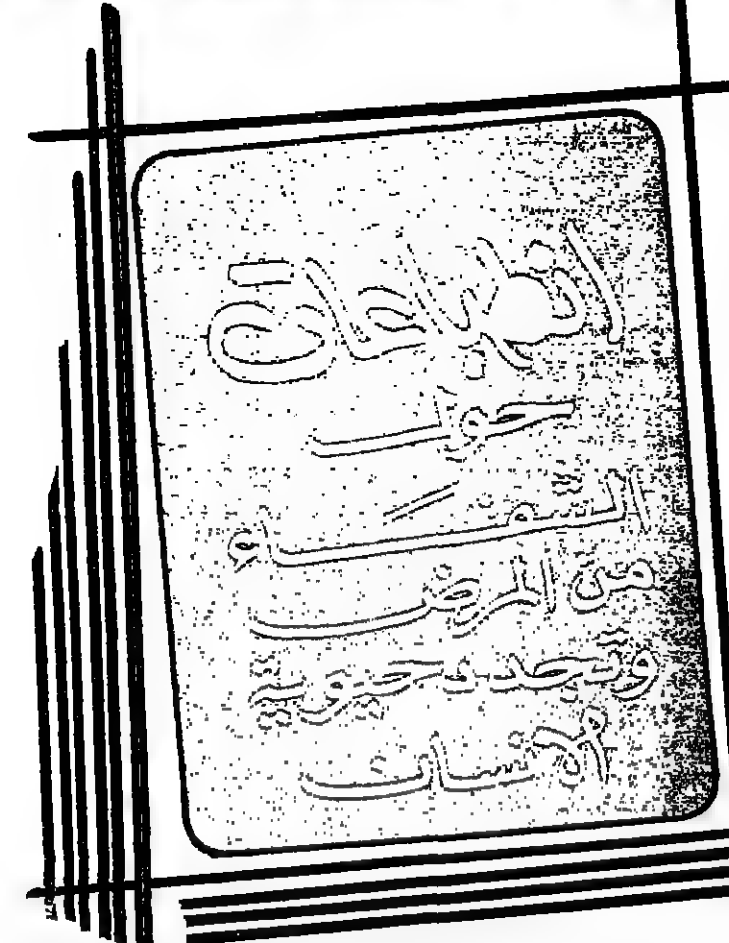 انطباعات
حول
الشفاء
من المرض
وتجدد حيوية
الإنسان